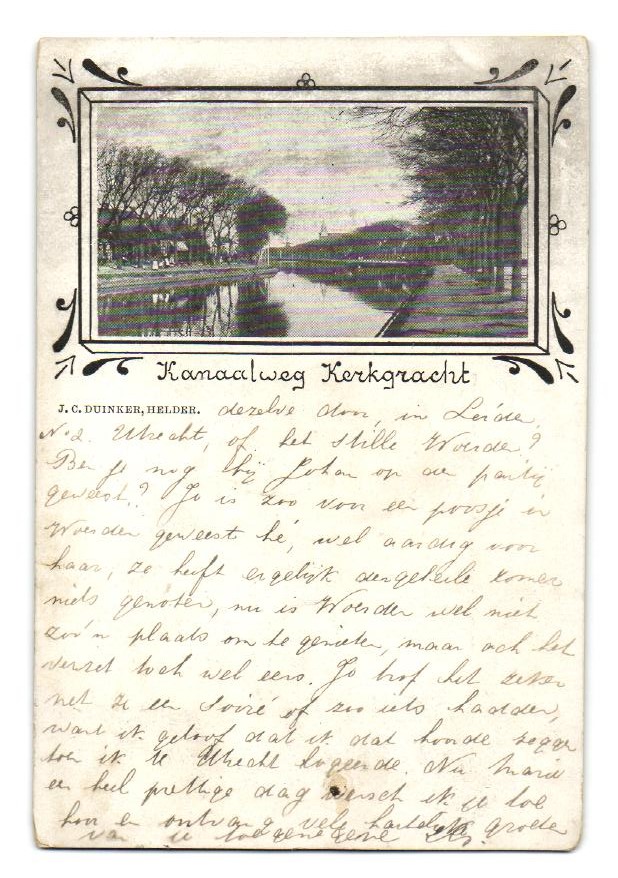 Kanaalweg Kerkgracht
J. C. DUINKER, HELDER. dezelve door, in Leiden,
Utrecht, of het stille Woerden?
Ben je nog bij Johan op de partij
geweest? Jo is zoo voor een poosje in
Woerden geweest hé, wel aardig voor
haar, ze heeft eigelijk dergeheele zomer
niets genoten, nu is Woerden wel niet
zoo'n plaats om te genieten, maar och het
verzet toch wel eens. Jo trof het zeker
net ze een Soiré of zoo iets hadden,
want ik geloof dat ik dat hoorde zeggen
toen ik te Utrecht logeerde. Nu Marie
een heel prettige dag wensch ik je toe
hoor en ontvang vele hartelijke groeten
van u toegenegene